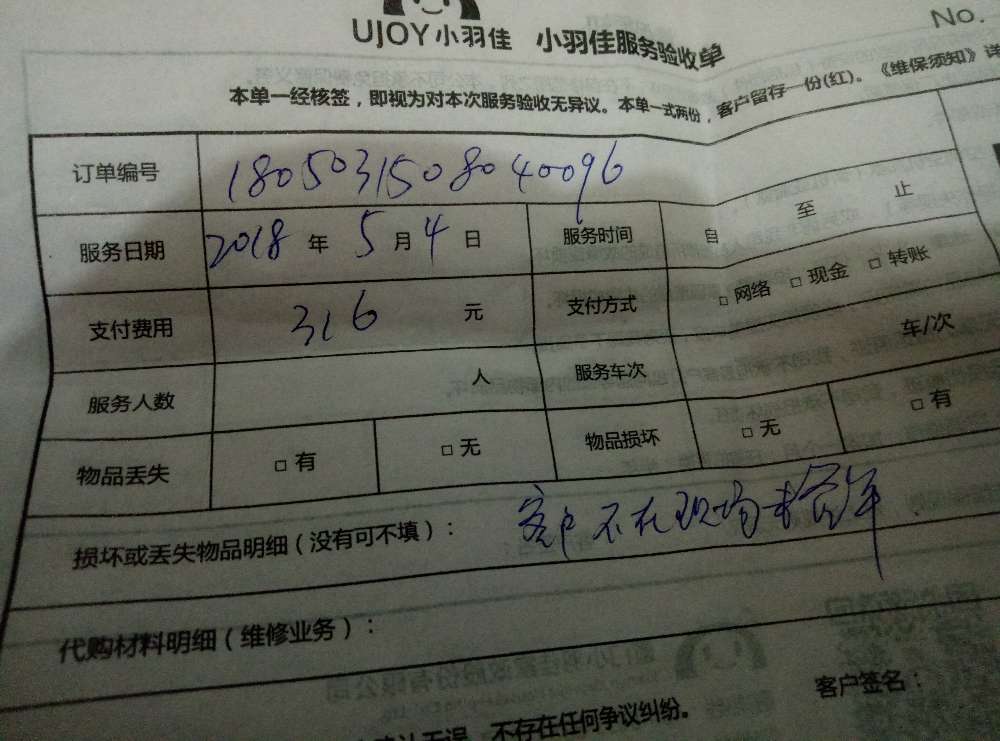 UJOY小羽佳 小羽佳服务验收单 No.
本单一经核签，即视为对本次服务验收无异议。本单一式两份，客户留存一份(红)。《维保须知》详
订单编号 1805031508040096
服务日期 2018 年 5 月 4 日 服务时间 自 至 止
支付费用 316 元 支付方式 □ 网络 □ 现金 □ 转账
服务人数 人 服务车次 车/次
物品丢失 □ 有 □ 无 物品损坏 □ 无 □ 有
损坏或丢失物品明细（没有可不填）： 客户不在现场未签
代购材料明细（维修业务）：
客户签名：
无误，不存在任何争议纠纷。